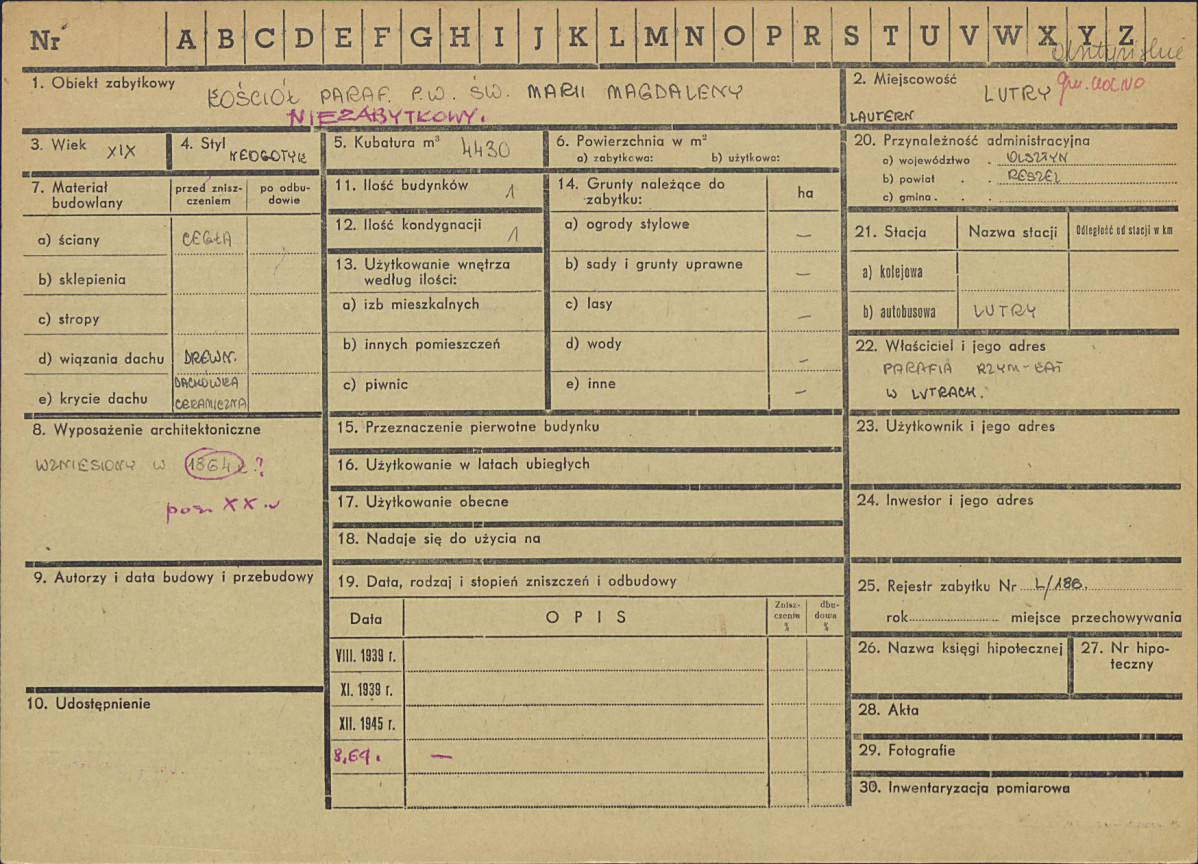 Nr A B C D E F G H I J K L M N O P R S T U V W X Y Z
olsztyńskie
1. Obiekt zabytkowy
KOŚCIÓŁ PARAF. P.W. ŚW. MARII MAGDALENY
NIEZABYTKOWY.
2. Miejscowość
LUTRY gm. KOLNO
LAUTERN
3. Wiek XIX
4. Styl NEOGOTYK
5. Kubatura m³ 4430
6. Powierzchnia w m²
a) zabytkowa: b) użytkowa:
20. Przynależność administracyjna
a) województwo . OLSZTYN
b) powiat . . RESZEL
c) gmina . . .
7. Materiał budowlany
przed znisz-
czeniem
po odbu-
dowie
a) ściany CEGŁA
b) sklepienia
c) stropy
d) wiązania dachu DREWN.
e) krycie dachu DACHÓWKA
CERAMICZNA
11. Ilość budynków 1
12. Ilość kondygnacji 1
13. Użytkowanie wnętrza
według ilości:
a) izb mieszkalnych
b) innych pomieszczeń
c) piwnic
14. Grunty należące do
zabytku:
ha
a) ogrody stylowe —
b) sady i grunty uprawne —
c) lasy —
d) wody —
e) inne —
21. Stacja Nazwa stacji Odległość od stacji w km
a) kolejowa
b) autobusowa LUTRY
22. Właściciel i jego adres
PARAFIA RZYM-KAT
W LUTRACH.
8. Wyposażenie architektoniczne
WZNIESIONY W 1864 r. ?
pocz. XX w
15. Przeznaczenie pierwotne budynku
16. Użytkowanie w latach ubiegłych
17. Użytkowanie obecne
18. Nadaje się do użycia na
23. Użytkownik i jego adres
24. Inwestor i jego adres
9. Autorzy i data budowy i przebudowy
10. Udostępnienie
19. Data, rodzaj i stopień zniszczeń i odbudowy
Data OPIS
Znisz-
czenia
%
dbu-
dowa
%
VIII. 1939 r.
XI. 1939 r.
XII. 1945 r.
8.64. —
25. Rejestr zabytku Nr L/186.
rok miejsce przechowywania
26. Nazwa księgi hipotecznej
27. Nr hipo-
teczny
28. Akta
29. Fotografie
30. Inwentaryzacja pomiarowa